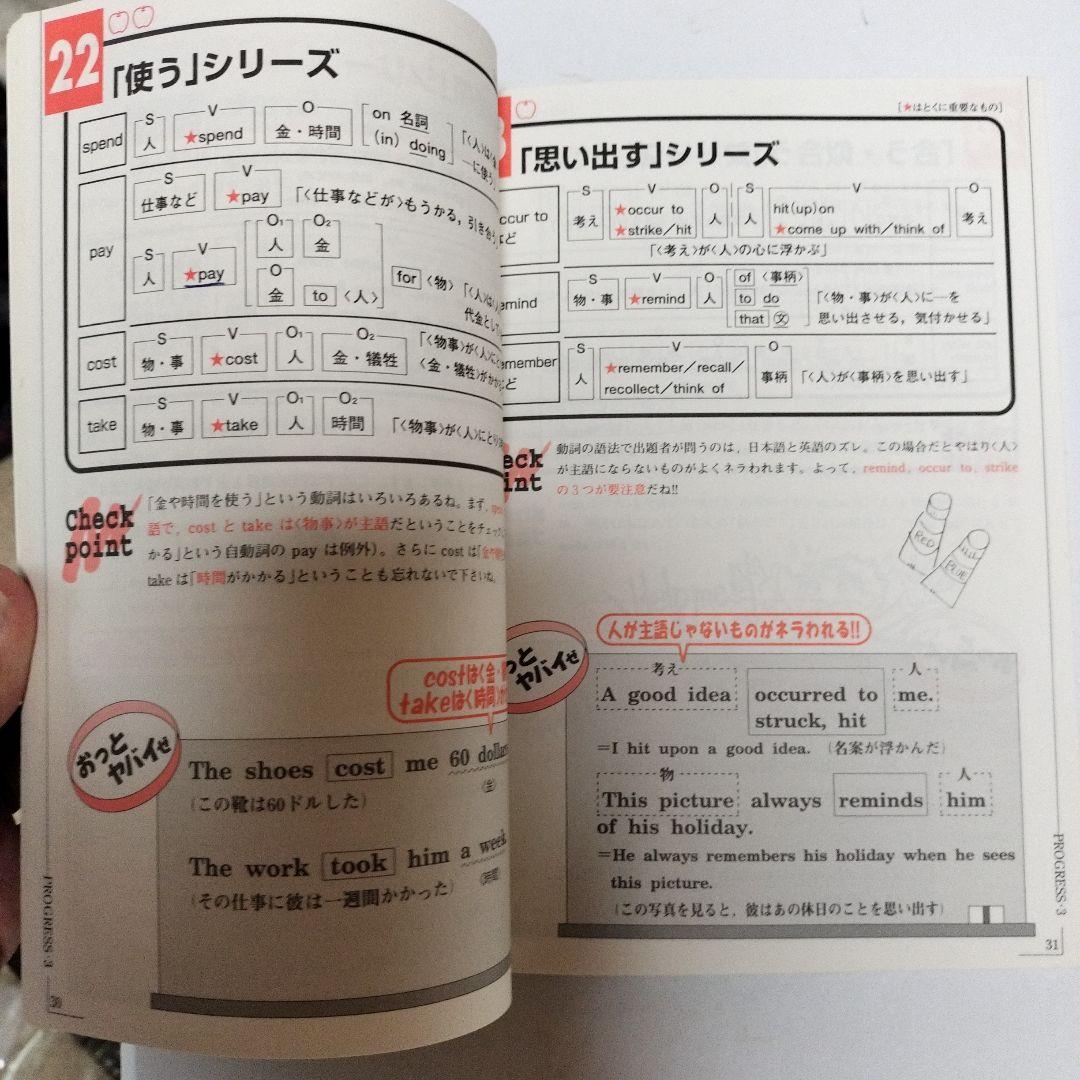 22
「使う」シリーズ
spend
S V O
人 ★spend 金・時間 on 名詞
(in) doing
pay
S V
仕事など ★pay 「〈仕事などが〉もうかる，引き合う
S V O₁ O₂
人 ★pay 人 金
O
金 to 〈人〉
for 〈物〉
代金として
cost
S V O₁ O₂
物・事 ★cost 人 金・犠牲 「〈物事〉が〈人〉に
〈金・犠牲〉がかかる
take
S V O₁ O₂
物・事 ★take 人 時間 「〈物事〉が〈人〉にとり
Check point
「金や時間を使う」という動詞はいろいろあるね。まず，
語で，cost と take は〈物事〉が主語だということをチェック
かる」という自動詞の pay は例外）。さらに cost は「金や
take は「時間がかかる」ということも忘れないで下さいね。
costは〈金・
takeは〈時間〉
おっとヤバイぜ
The shoes cost me 60 dollars
〈金〉
(この靴は60ドルした)
The work took him a week.
〈時間〉
(その仕事に彼は一週間かかった)
PROGRESS・3
30
[★はとくに重要なもの]
「思い出す」シリーズ
occur to
など
S V O S V O
考え ★occur to 人 人 hit(up)on 考え
★strike／hit ★come up with／think of
「〈考え〉が〈人〉の心に浮かぶ」
remind
S V O
物・事 ★remind 人 of 〈事柄〉
to do
that 文
「〈物・事〉が〈人〉に―を
思い出させる，気付かせる」
remember
など
S V O
人 ★remember／recall／ 事柄 「〈人〉が〈事柄〉を思い出す」
recollect／think of
動詞の語法で出題者が問うのは，日本語と英語のズレ。この場合だとやはり〈人〉
が主語にならないものがよくネラわれます。よって，remind, occur to, strike
の３つが要注意だね!!
RED
BLUE
人が主語じゃないものがネラわれる!!
考え 人
A good idea occurred to me.
struck, hit
＝I hit upon a good idea. (名案が浮かんだ)
物 人
This picture always reminds him
of his holiday.
＝He always remembers his holiday when he sees
this picture.
(この写真を見ると，彼はあの休日のことを思い出す)
PROGRESS・3
31